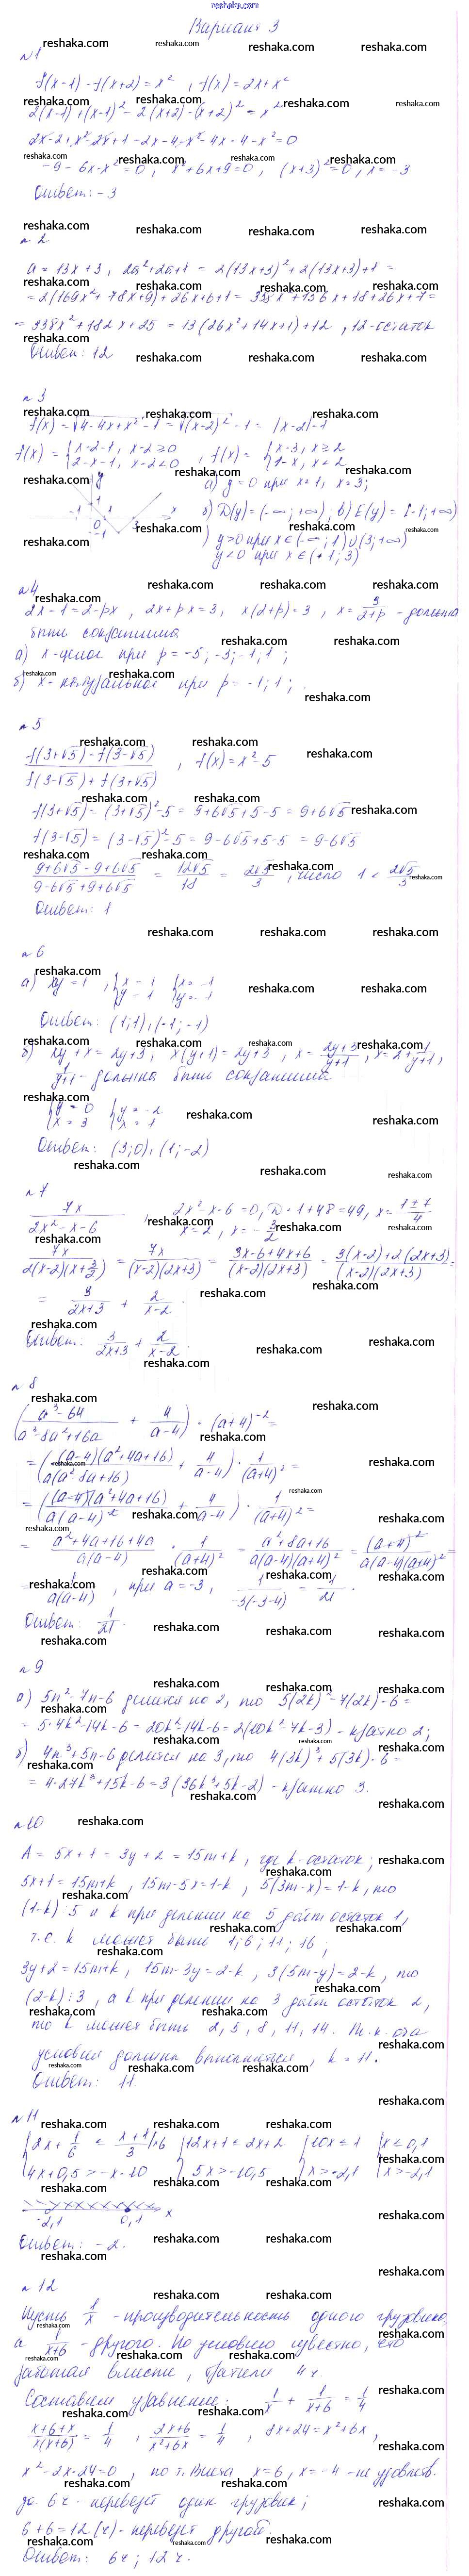 reshaka.com
Вариант 3
№1
f(x-1) - f(x+2) = x² , f(x) = 2x + x²
2(x-1) + (x-1)² - 2(x+2) - (x+2)² = x²
2x-2+x²-2x+1-2x-4-x²-4x-4-x²=0
-9-6x-x²=0, x²+6x+9=0, (x+3)²=0, x=-3
Ответ: -3
№2
a = 13x+3, 2a²+2a+1 = 2(13x+3)²+2(13x+3)+1 =
= 2(169x²+78x+9)+26x+6+1 = 338x²+156x+18+26x+7=
= 338x²+182x+25 = 13(26x²+14x+1)+12, 12-остаток
Ответ: 12
№3
f(x) = √4-4x+x² - 1 = √(x-2)² - 1 = |x-2|-1
f(x) = { x-2-1, x-2≥0 ; 2-x-1, x-2<0 , f(x) = { x-3, x≥2 ; 1-x, x<2
а) y=0 при x=1, x=3;
б) D(y)=(-∞;+∞); в) E(y)=[-1;+∞)
y>0 при x∈(-∞;1)∪(3;+∞)
y<0 при x∈(1;3)
№4
2x-1=2-px, 2x+px=3, x(2+p)=3, x=3/(2+p) - должна
быть сократима
а) x-целое при p=-5;-3;-1;1;
б) x-натуральное при p=-1;1;
№5
(f(3+√5)-f(3-√5))/(f(3-√5)+f(3+√5)) , f(x)=x²-5
f(3+√5)=(3+√5)²-5=9+6√5+5-5=9+6√5
f(3-√5)=(3-√5)²-5=9-6√5+5-5=9-6√5
(9+6√5-9+6√5)/(9-6√5+9+6√5) = 12√5/18 = 2√5/3, число 1 < 2√5/3
Ответ: 1
№6
а) xy=1, {x=1 y=1 {x=-1 y=-1
Ответ: (1;1),(-1;-1)
б) xy+x=2y+3, x(y+1)=2y+3, x=(2y+3)/(y+1), x=2+1/(y+1),
1/(y+1) - должна быть сократимой
{y=0 x=3 {y=-2 x=1
Ответ: (3;0),(1;-2)
№7
7x/(2x²-x-6) , 2x²-x-6=0, D=1+48=49, x=(1±7)/4
x=2, x=-3/2
7x/(2(x-2)(x+3/2)) = 7x/((x-2)(2x+3)) = (3x-6+4x+6)/((x-2)(2x+3)) = (3(x-2)+2(2x+3))/((x-2)(2x+3)) =
= 3/(2x+3) + 2/(x-2).
Ответ: 3/(2x+3) + 2/(x-2).
№8
((a³-64)/(a³-8a²+16a) + 4/(a-4)) · (a+4)⁻² =
= ((a-4)(a²+4a+16)/(a(a²-8a+16)) + 4/(a-4)) · 1/(a+4)² =
= ((a-4)(a²+4a+16)/(a(a-4)²) + 4/(a-4)) · 1/(a+4)² =
= (a²+4a+16+4a)/(a(a-4)) · 1/(a+4)² = (a²+8a+16)/(a(a-4)(a+4)²) = (a+4)²/(a(a-4)(a+4)²) =
= 1/(a(a-4)), при a=-3, 1/(-3(-3-4)) = 1/21.
Ответ: 1/21.
№9
а) 5n²-7n-6 делится на 2, то 5(2k)²-7(2k)-6=
= 5·4k²-14k-6=20k²-14k-6=2(10k²-7k-3) - кратно 2;
б) 4n³+5n-6 делится на 3, то 4(3k)³+5(3k)-6=
= 4·27k³+15k-6=3(36k³+5k-2) - кратно 3.
№10
A = 5x+1 = 3y+2 = 15m+k, где k-остаток;
5x+1=15m+k, 15m-5x=1-k, 5(3m-x)=1-k, то
(1-k)⋮5 и k при делении на 5 даёт остаток 1,
т.е. k может быть 1; 6; 11; 16;
3y+2=15m+k, 15m-3y=2-k, 3(5m-y)=2-k, то
(2-k)⋮3, а k при делении на 3 даёт остаток 2,
то k может быть 2, 5, 8, 11, 14. Т.к. оба
условия должны выполняться, k=11.
Ответ: 11.
№11
{2x+1/6 ≤ (x+1)/3 |·6 {12x+1≤2x+2 {10x≤1 {x≤0,1
4x+0,5>-x-10 5x>-10,5 x>-2,1 x>-2,1
-2,1 0,1 x
Ответ: -2.
№12
Пусть 1/x - производительность одного грузовика,
а 1/(x+6) - другого. По условию известно, что
работая вместе, тратили 4 ч.
Составим уравнение: 1/x + 1/(x+6) = 1/4
(x+6+x)/(x(x+6)) = 1/4, (2x+6)/(x²+6x) = 1/4, 8x+24=x²+6x,
x²-2x-24=0, по т. Виета x=6, x=-4 - не удовлетв.
6 ч - перевезёт один грузовик;
6+6=12 (ч) - перевезёт другой.
Ответ: 6ч; 12ч.